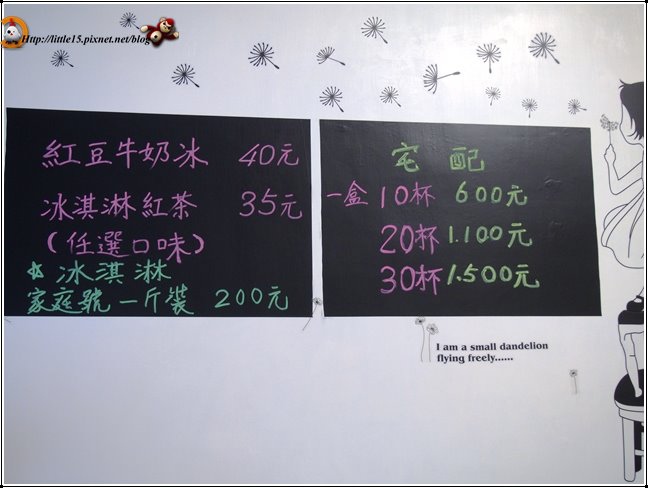 Http://little15.pixnet.net/blog
紅豆牛奶冰 40元
冰淇淋紅茶 35元
(任選口味)
☆冰淇淋
家庭號一斤裝 200元
宅配
一盒10杯 600元
20杯 1.100元
30杯 1.500元
I am a small dandelion
flying freely......